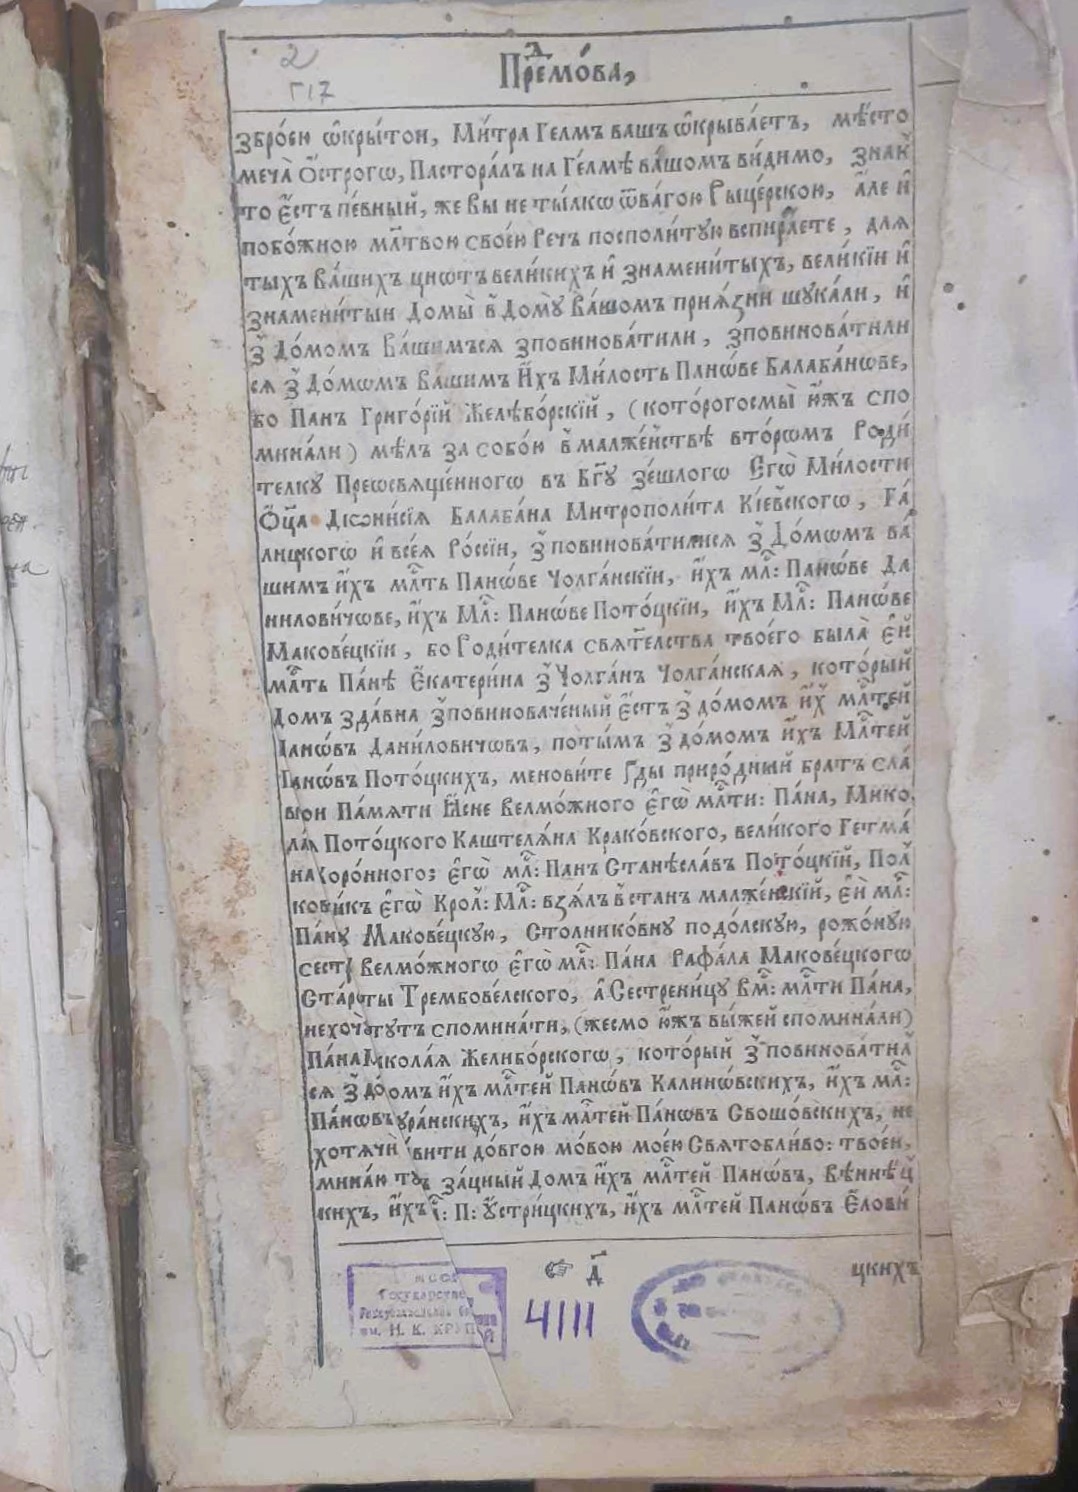 2
Г17
Преⷣмо́ва,
збро́ею ѡ҆кры́тои, Ми́тра Гелмъ вашъ ѡ҆крыва́етъ, мѣ́сто
меча̀ О҆́строгѡ, Пастора́лъ на Ге́лмѣ ва́шомъ ви́димо, знак
то е҆́стъ пе́вный, же Вы не ты́лкѡ ѿва́гою Рыце́рскою, а҆́ле и҆
побо́жною мл҃твою свое́ю Речъ посполи́тую вспира́ете, для
тыхъ Ва́шихъ цнѡтъ вели́кихъ и҆ знамени́тыхъ, вели́кїи и҆
знамени́тыи Домы̀ в Дому̀ Ва́шомъ прия́зни шука́ли, и҆
з До́момъ Ва́шимъся зповинова́тили, зповинова́тили
ся з До́мѡмъ Ва́шимъ И҆́хъ Ми́лость Панѡ́ве Балаба́нѡве,
бо Панъ Григо́рїй Желѣбо́рскїй, (кото́рогосмы̀ ю҆́жъ спо
мина́ли) мѣ́лъ за собо́ю в малже́нствѣ вто́рѡмъ Роди́
телку Преѡсвяще́нногѡ въ Бг҃у зе́шлогѡ Єгѡ̀ Ми́лости
Ѻ҆ц҃а Дїѡни́сїя Балаба́на Митрополи́та Кі́евскогѡ, Га́
лицкогѡ и҆ всея́ Ро́ссїи, зповинова́тилися з До́мѡмъ ва́
шимъ и҆́хъ млⷭ҇ть Панѡ́ве Чолга́нскїи, и҆́хъ млⷭ҇: Панѡ́ве Да
ниловичѡве, и҆́хъ Млⷭ҇: Панѡ́ве Пото́цкїи, и҆́хъ Млⷭ҇: Панѡ́ве
Макове́цкїи, бо Роди́телка святⷮелства твоего́ была̀ е҆й
млⷭ҇ть Па́нѣ Є҆катери́на з Чолга́нъ Чолга́нская, кото́рый
Домъ зда́вна зповинова́че́ный е҆́стъ з до́момъ и҆́х млⷭ҇тей
Панѡ́въ Дани́ловичѡвъ, поты́мъ з до́момъ и҆́хъ Млⷭ҇тей
Панѡ́въ Пото́цкихъ, менови́те гды приро́дный братъ сла́
вной Па́мяти Ꙗ҆́сне Велмо́жного е҆гѡ̀ млⷭ҇ти: Па́на, Мико
ла́я Пото́цкого Каштеля́на Крако́вского, вели́кого Гетма́
на оро́нного; е҆гѡ̀ млⷭ҇: Панъ Станѣсла́въ Пото́цкїй, Пол
кови́къ е҆гѡ̀ Крол: Млⷭ҇: взя́лъ в станъ малже́нскїй, е҆й млⷭ҇:
Па́ну Макове́цкую, Столнико́вну подо́лскую, рожо́ную
сест Велмо́жногѡ е҆гѡ̀ млⷭ҇: Па́на Рафа́ла Макове́цкогѡ
Ста́ро́ты Трембове́лского, а҆ Сестрени́цу Вмⷭ҇: млⷭ҇ти Па́на,
нехоч тутъ спомина́ти, (жесмо ю҆́жъ вы́жей спомина́ли)
Па́на колая́ Желибо́рскогѡ, кото́рый зповинова́тил
ся з до́омъ и҆́хъ млⷭ҇тей Панѡ́въ Калинѡ́вскихъ, и҆́хъ млⷭ҇:
Па́нѡвъ ура́нскихъ, и҆́хъ млⷭ҇тей Па́нѡвъ Свошо́вскихъ, не
хотячи вити до́вгою мо́вою мое́ю Святобли́во: твое́й,
мина́ю т за́цный Домъ и҆́хъ млⷭ҇тей Панѡ́въ, Вѣннѣц
кихъ, и҆́хъ : П: У҆стри́цкихъ, и҆́хъ млⷭ҇тей Панѡ́въ Є҆лови́
д҃
цкихъ
МССР
Государстве
Республиканская
им. Н. К. КРУП
4111